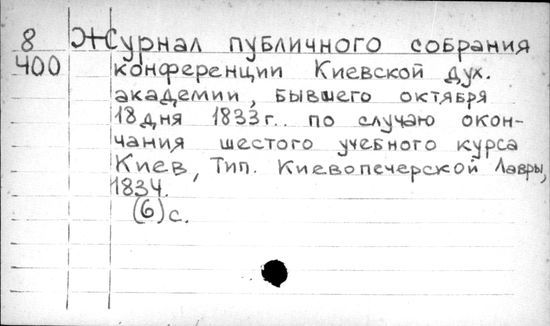 8 Журнал публичного собрания
400 конференции Киевской дух.
академии, бывшего октября
18 дня 1833 г. по случаю окон-
чания шестого учебного курса
Киев, Тип. Киевопечерской Лавры,
1834.
(6) с.